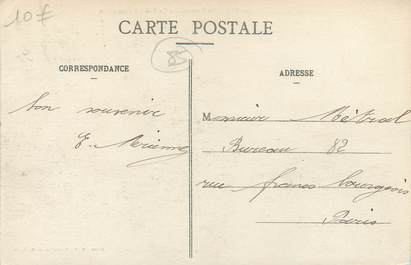 10 €
CARTE POSTALE
85
CORRESPONDANCE
ADRESSE
bon souvenir
Monsieur Métral
Bureau 82
rue francs bourgeois
Paris